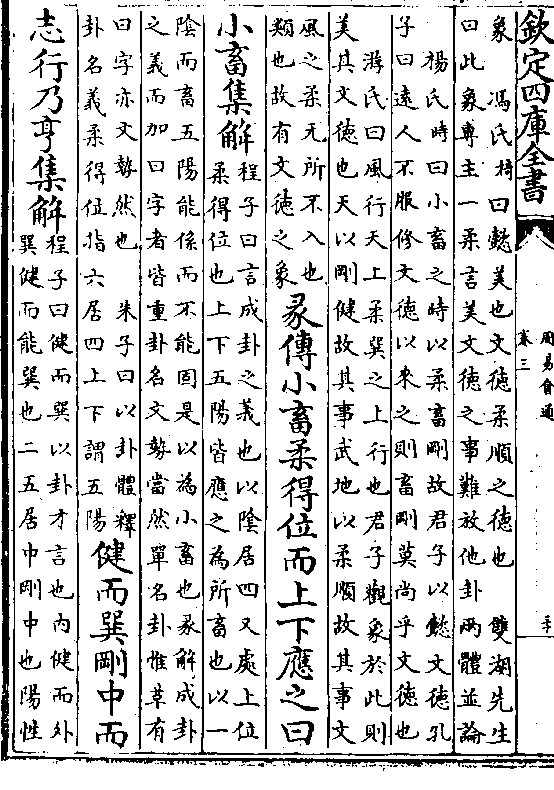 欽定四庫全書
周易會通
卷三
象　馮氏椅曰懿美也文德柔順之德也　雙湖先生
曰此象專主一柔言美文德之事難放他卦兩體並論
楊氏時曰小畜之時以柔畜剛故君子以懿文德孔
子曰遠人不服修文德以來之則畜剛莫尚乎文德也
游氏曰風行天上柔巽之上行也君子觀象於此則
美其文德也天以剛健故其事武地以柔順故其事文
風之柔无所不入也
類也故有文德之象
彖傳小畜柔得位而上下應之曰
小畜集解
程子曰言成卦之義也以陰居四又處上位
柔得位也上下五陽皆應之為所畜也以一
陰而畜五陽能係而不能固是以為小畜也彖解成卦
之義而加曰字者皆重卦名文勢當然單名卦惟革有
曰字亦文勢然也　朱子曰以卦體釋
卦名義柔得位指六居四上下謂五陽
健而巽剛中而
志行乃亨集解
程子曰健而巽以卦才言也内健而外
巽健而能巽也二五居中剛中也陽性